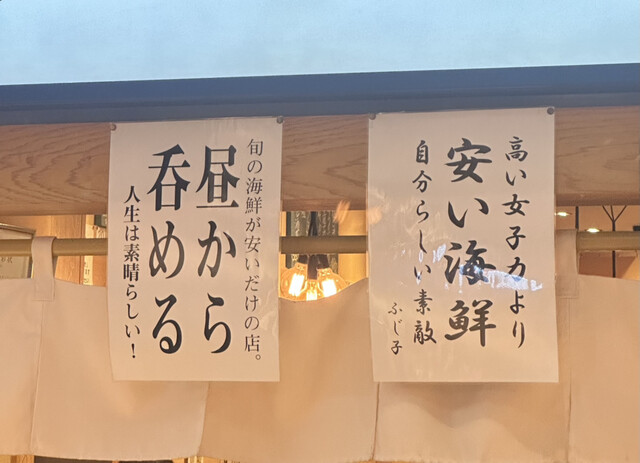 高い女子力より
安い海鮮
自分らしい素敵
ふじ子
旬の海鮮が安いだけの店。
昼から
呑める
人生は素晴らしい！